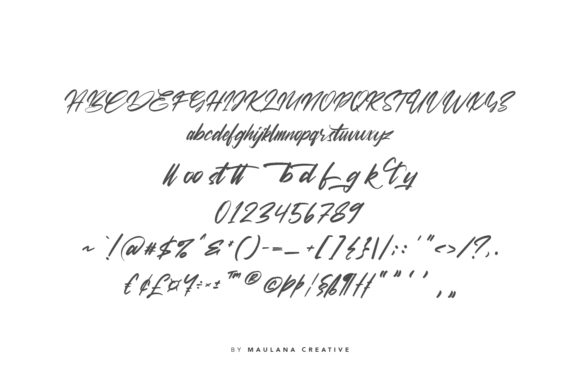 ABCDEFGHIJKLMNOPQRSTUVWXYZ
abcdefghijklmnopqrstuvwxyz
ll oo st tt b d f g k ct y
0123456789
~ ` ! @ # $ % ^ & * ( ) - = _ + [ ] { } | \ / ; : ' " < > / ? , .
€ ¢ £ ¤ ¥ ÷ × ± ™ ® © Þ þ ¦ § ß ¶ † ‡ “ ” ‘ ’ ‚ „
BY MAULANA CREATIVE